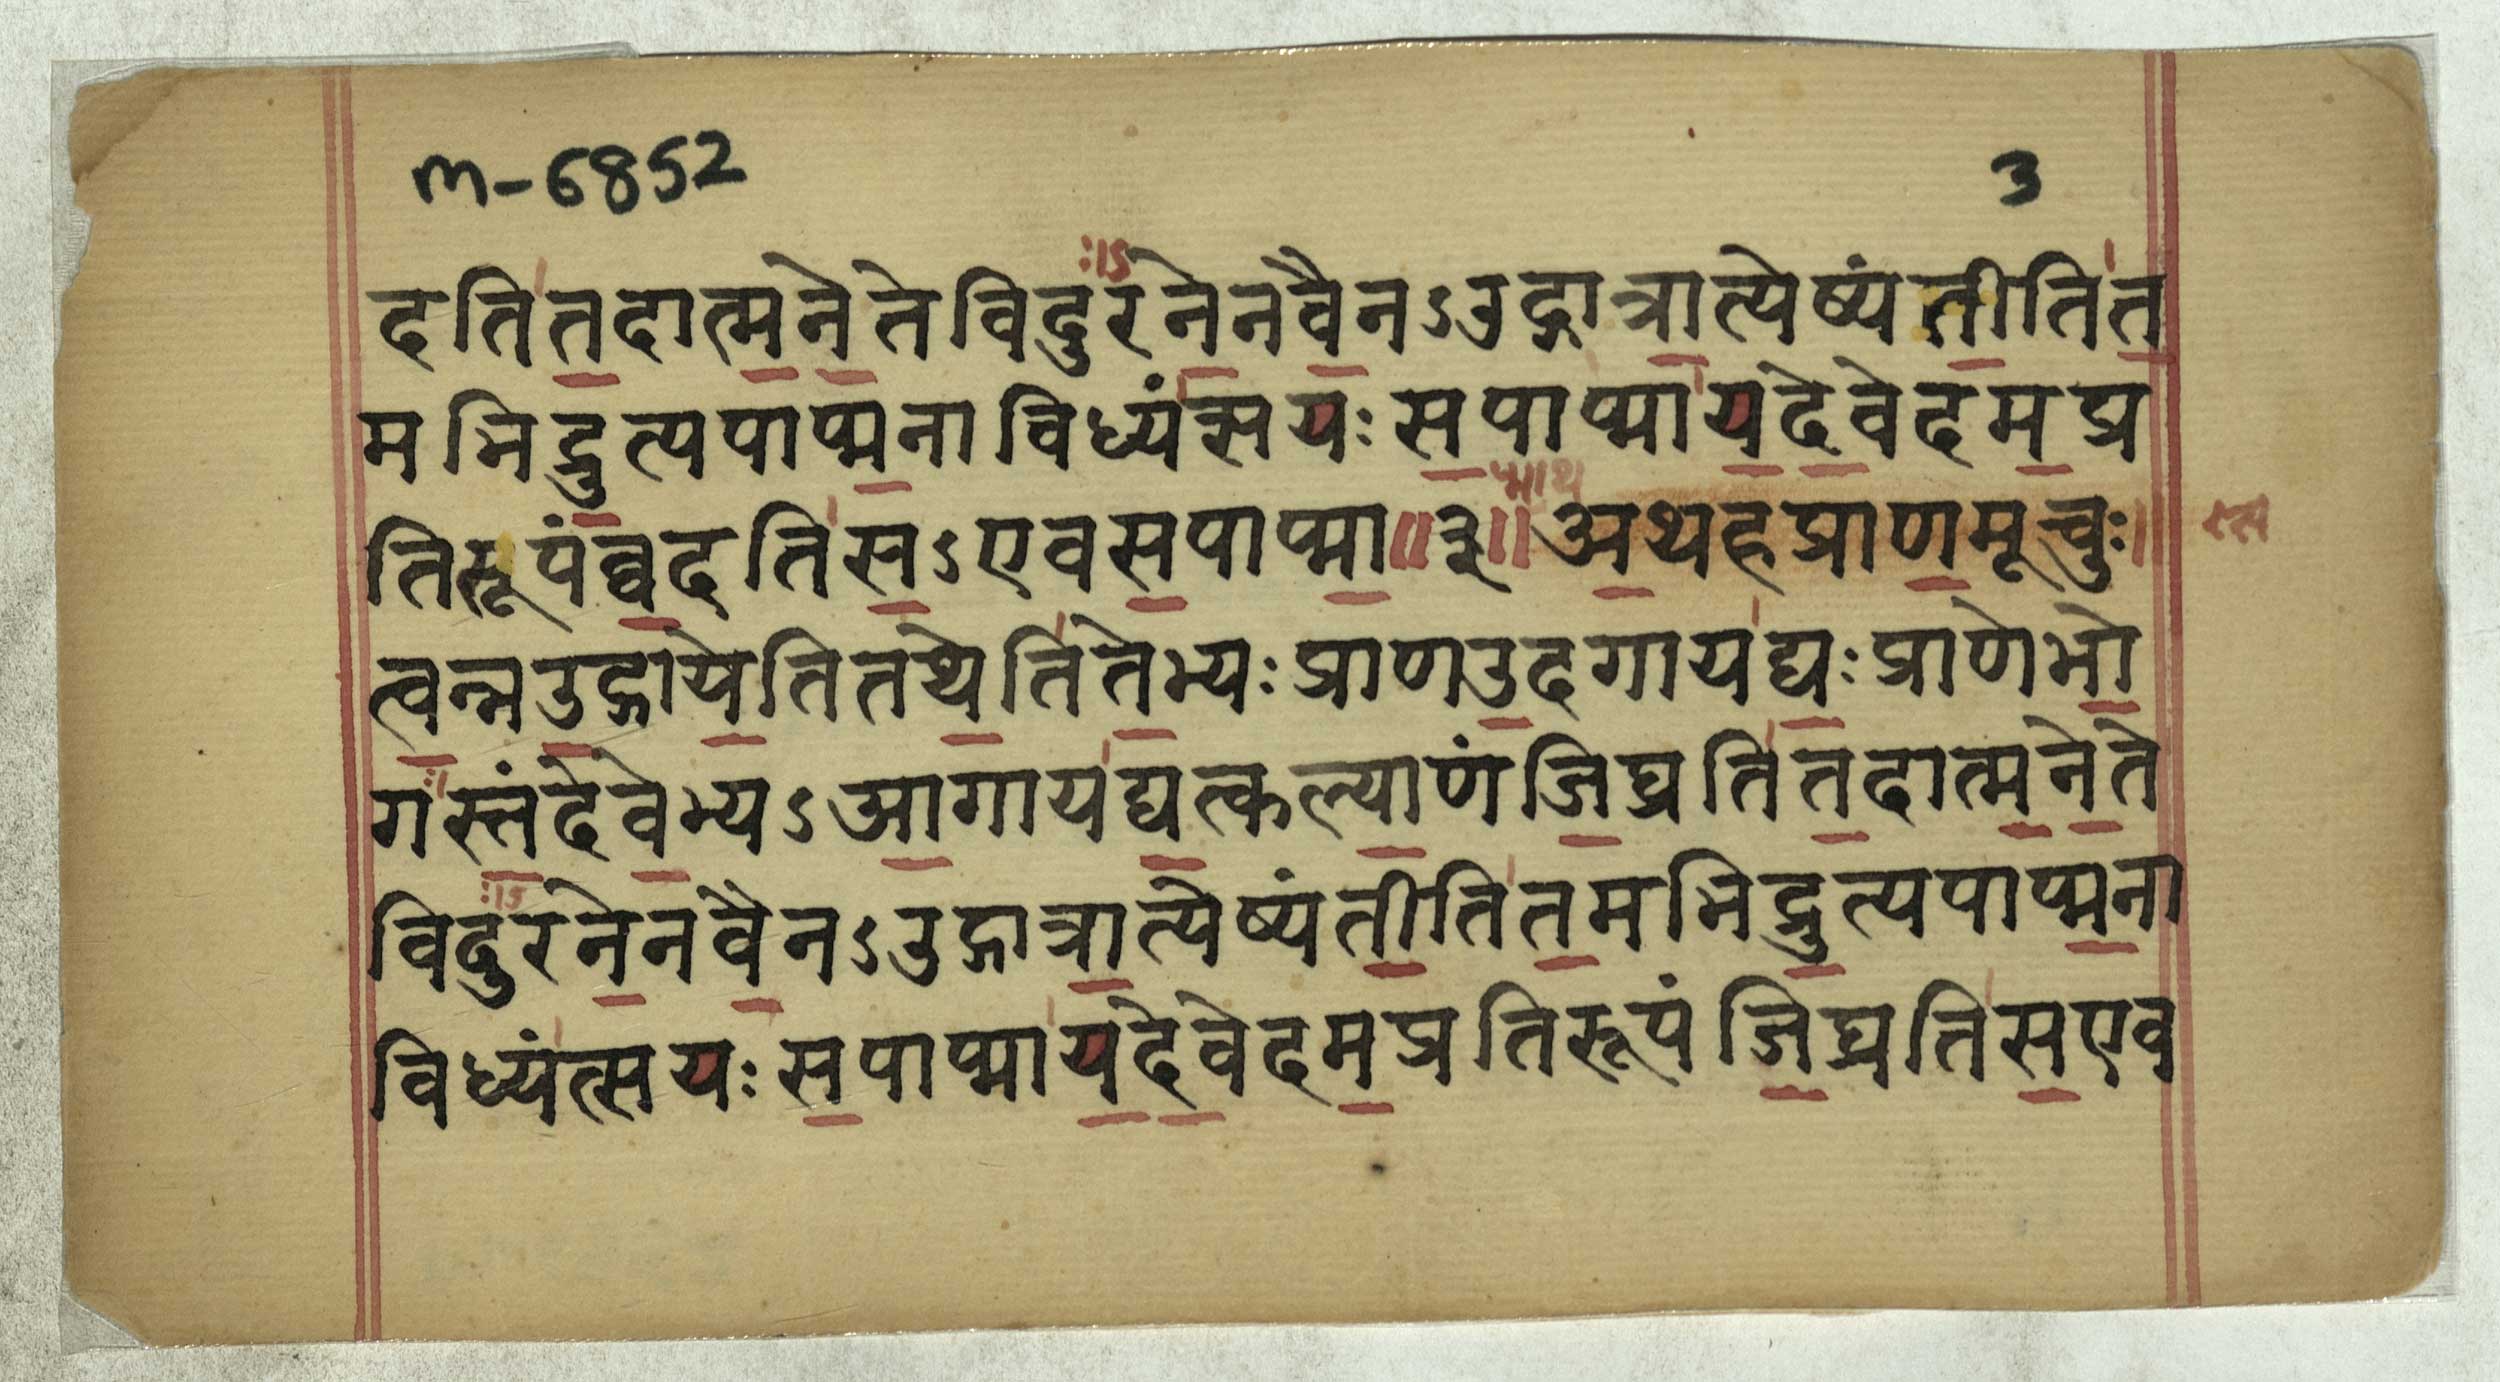 m-6852 3
दतितदात्मनेतेविदुरनेनवैनऽउद्गात्रात्येष्यंतीतित
मभिद्रुत्यपाप्मनाविध्यंत्सयः सपाप्मायदेवेदमप्र
तिरूपंव्वदतिसऽएवसपाप्मा॥३॥अथहप्राणमूचुः।
त्वन्नउद्गायेतितथेतितेभ्यः प्राणउदगायद्यः प्राणेभो
गस्तंदेवेभ्यऽआगायद्यत्कल्याणंजिघ्रतितदात्मनेते
विदुरनेनवैनऽउद्गात्रात्येष्यंतीतितमभिद्रुत्यपाप्मना
विध्यंत्सयः सपाप्मायदेवेदमप्रतिरूपंजिघ्रतिसएव